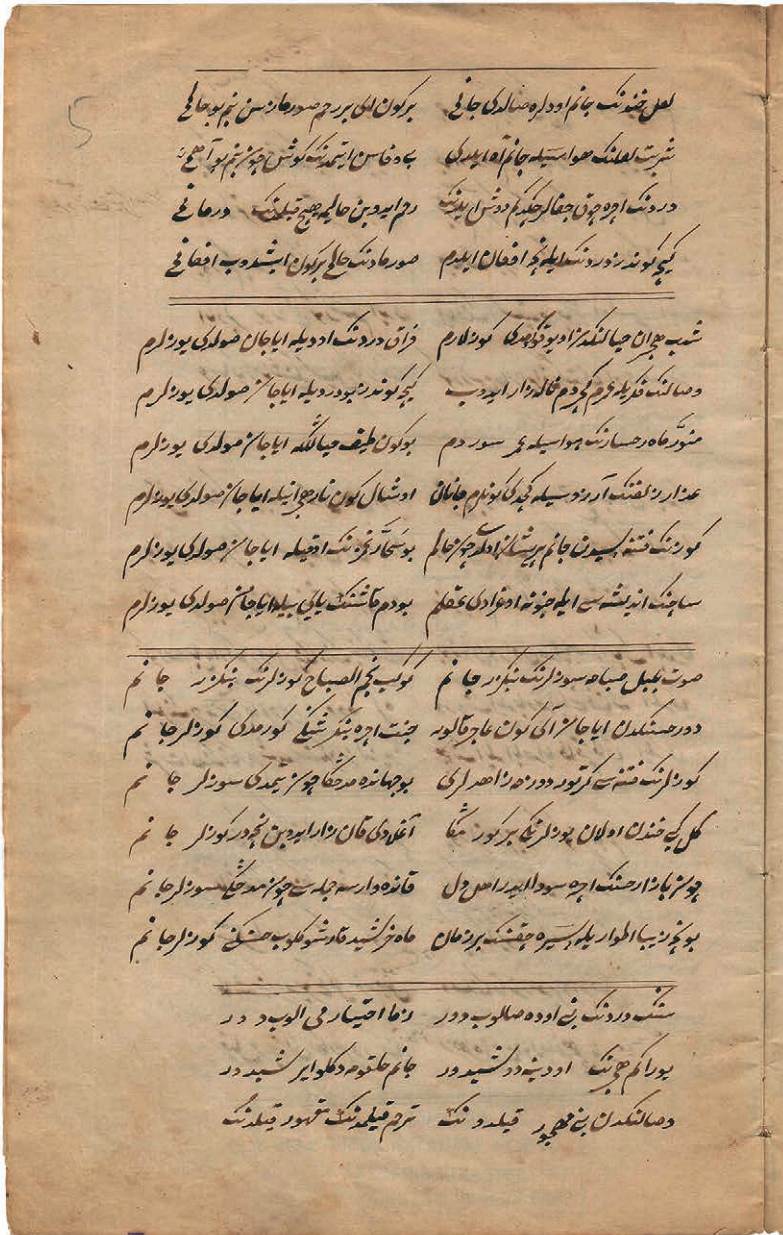 5
لعل خندنك جانم اودلره صالدی جانی بركون ای بررحم صورمازسن بنم بو جانی
شربت لعلنك هواسیله جانم آه ایلدی بی وفاسن ایتمدنك كوش چون بنم بو آهمی
دردنك اچره چوق جفالر چكدم دوش ایلدنك رحم ایدوبن حالیمه هیچ قیلمدنك درمانی
كیچه كوندز دردنك ایله نچه افغان ایلدم صورمادنك حالی بركون ایشدوب افغانی
شب هجران خیالنكدن اویقو كورمدی كوزلارم فراق دردنك اودیله ایا جان صولدی یوزلرم
وصالنك فكریله هردم كچردم ناله زار ایدوب كیچه كوندز بو دردیله ایا جان صولدی یوزلرم
منور ماه رخسارنك هواسیله سوردم بوكون طیف خیالنكله ایا جان صولدی یوزلرم
عذار زلفنك آرزوسیله كچدی كونلرم جانان اوشال كون نار هجرانیله ایا جان صولدی یوزلرم
كوزنك فتنه سیدن جانم پریشان اولدی چون حالم بو سحار غمزه نك اوقیله ایا جان صولدی یوزلرم
ساچنك اندیشه سی ایله جنونه اوغرادی عقلم بودم قاشنك یایی بیله ایا جان صولدی یوزلرم
صوت بلبل صباه سوزلرنك بنكزر جانم كوكب نجم الصباح كوزلرنك بنكزر جانم
دور حسنكدن ایا جان آی كون عاجز قالوبه جنت اچره بنكزشنكی كورمدی كوزلر جانم
كوزلرنك فتنه سی كرتور دوره زاهدلری بو جهانده مدحنكا چون یتمدی سوزلر جانم
كل كبی خندان اولان یوزلرنكی بر كور منكا آغلادی قان زار ایدوبن نچه در كوزلر جانم
چون بازار حسنك اچره سودا ایدر اهل دل قانده وارسه جمله سی چون مدحنكی سوزلر جانم
بو نچه زیبا اطواریله سیره چقسنك بر زمان ماه خرشید قارشو كلوب حسنكی كوزلر جانم
سنك دردنك بنی اوده صالوب دور زما اختیارمی الوب دور
یوراكم هجرنك اودینه دولشیدور جانم حلقومه دكلو ایرشیدور
وصالنكدن بنی مهجور قیلدونك ترحم قیلمدنك مقهور قیلدنك